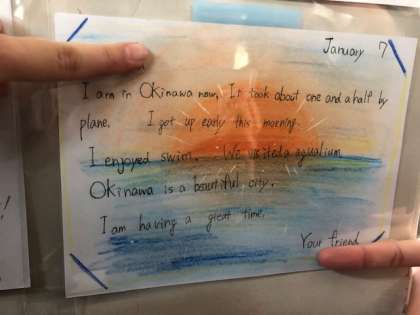 January 7
I am in Okinawa now. It took about one and a half by
plane. I got up early this morning.
I enjoyed swim. We visited a aqualium
Okinawa is a beautiful city.
I am having a great time.
Your friend